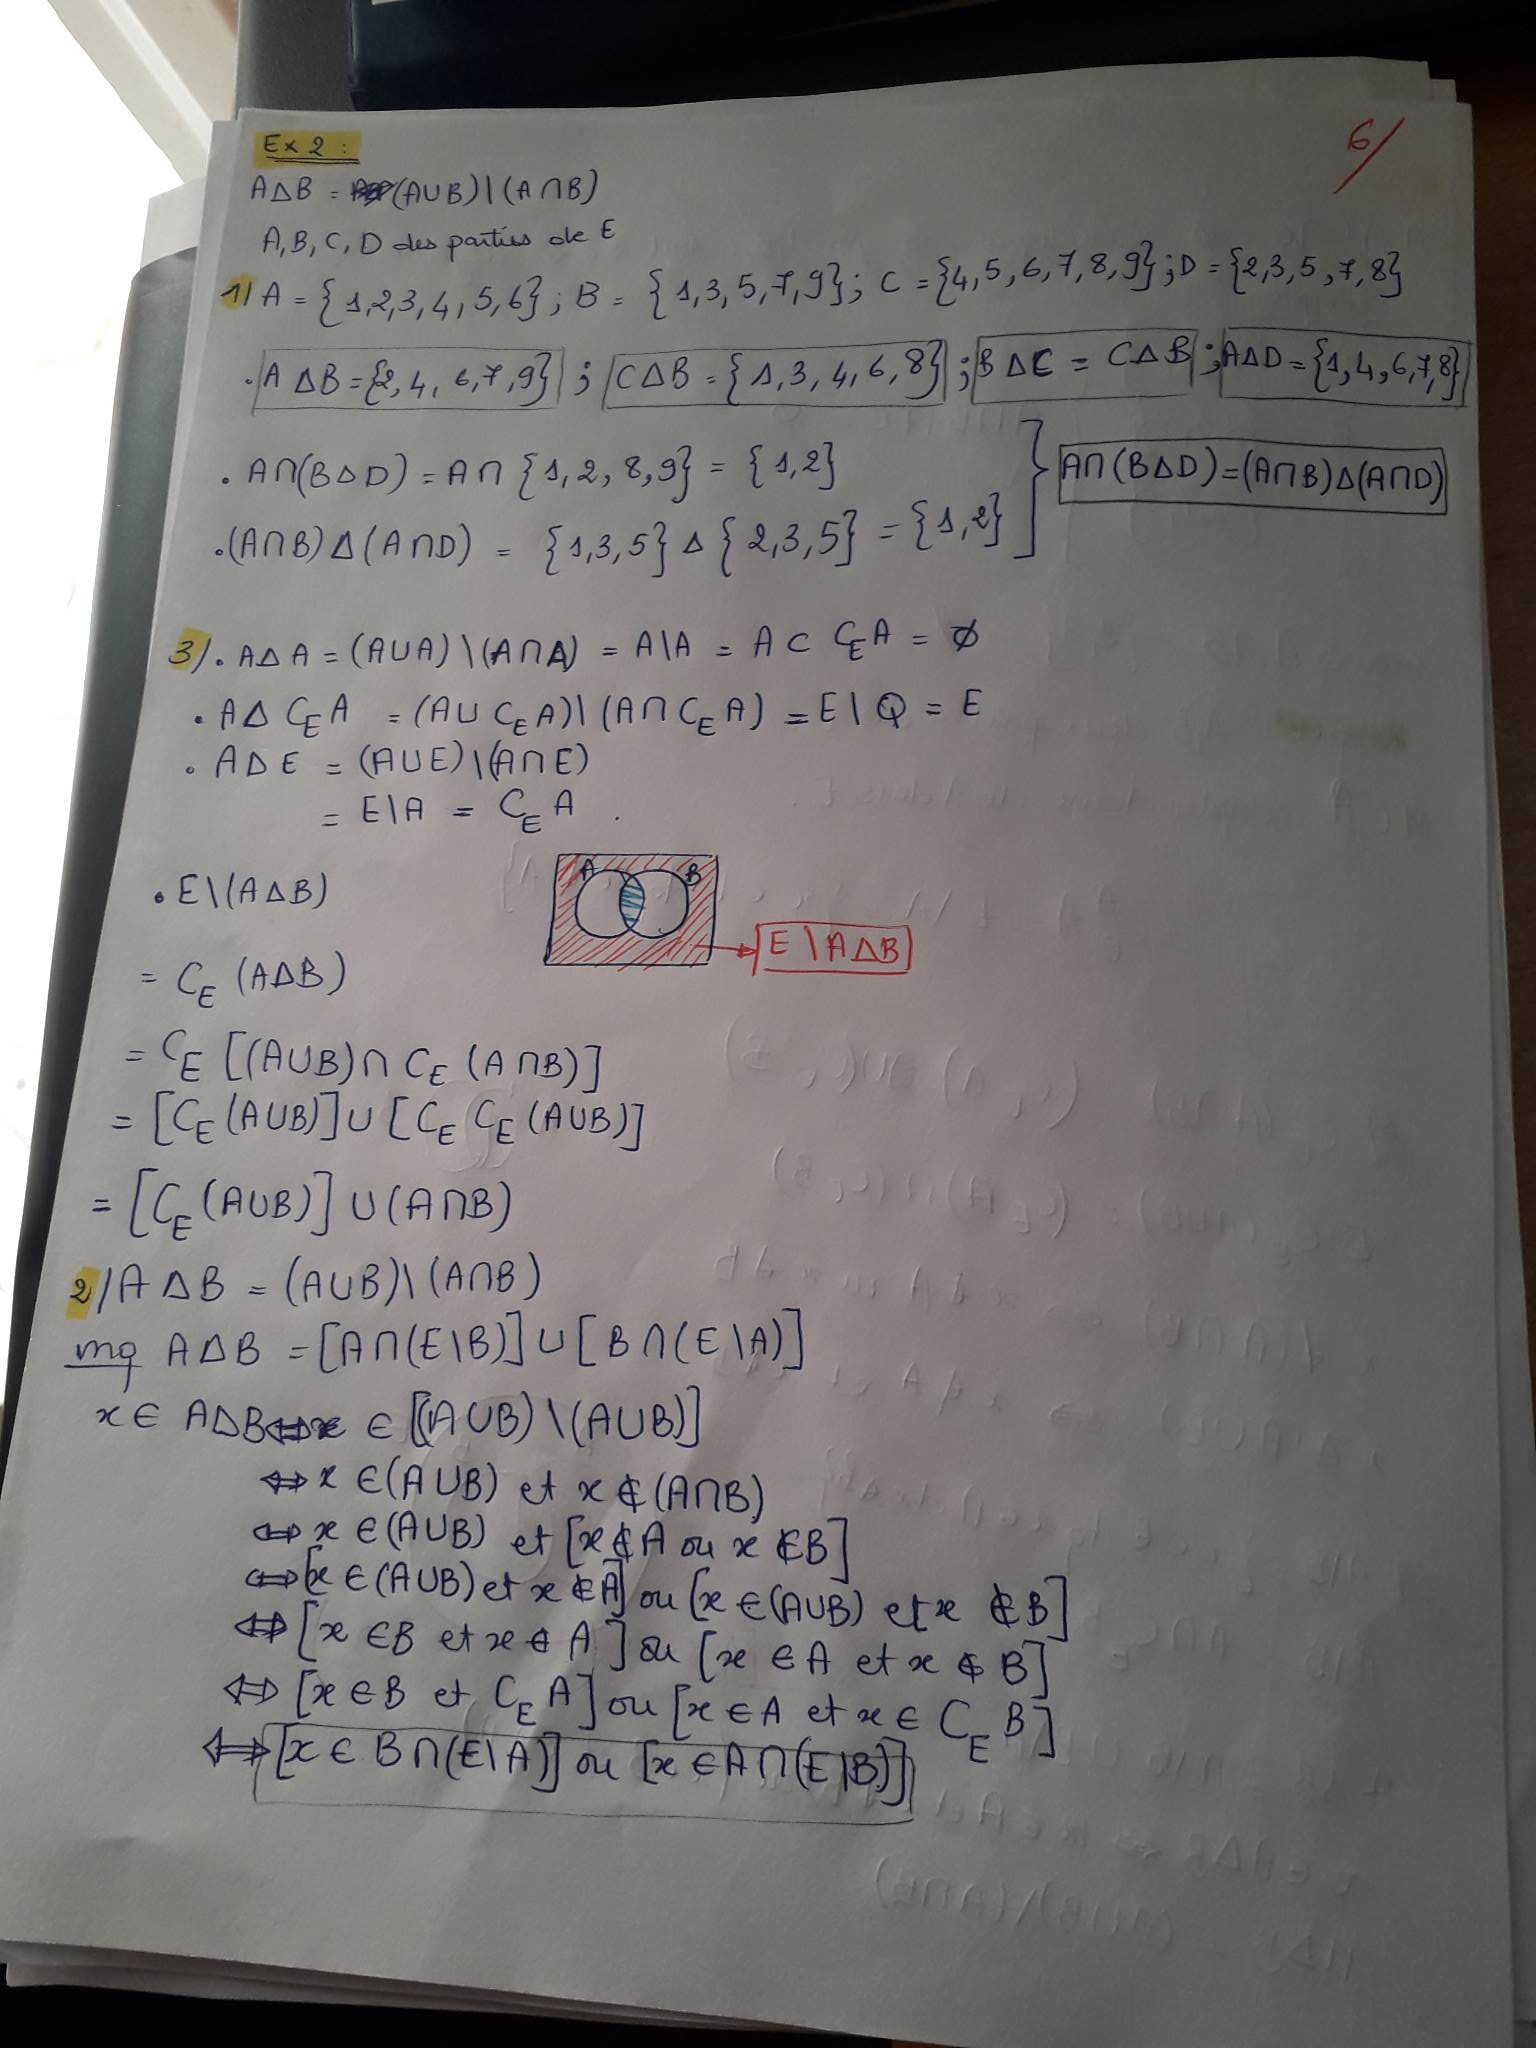 6/
Ex 2 :
A∆B = (A∪B)\(A∩B)
A, B, C, D des parties de E
1) A = {1,2,3,4,5,6} ; B = {1,3,5,7,9} ; C = {4,5,6,7,8,9} ; D = {2,3,5,7,8}
• A∆B = {2,4,6,7,9} ; C∆B = {1,3,4,6,8} ; B∆C = C∆B ; A∆D = {1,4,6,7,8}
• A∩(B∆D) = A∩{1,2,8,9} = {1,2}
• (A∩B)∆(A∩D) = {1,3,5}∆{2,3,5} = {1,2} } A∩(B∆D) = (A∩B)∆(A∩D)
3) • A∆A = (A∪A)\(A∩A) = A\A = A ⊂ C_E A = ∅
• A∆C_E A = (A∪C_E A)\(A∩C_E A) = E\Q = E
• A∆E = (A∪E)\(A∩E)
= E\A = C_E A .
A B
• E\(A∆B)
E\A∆B
= C_E (A∆B)
= C_E [(A∪B)∩C_E (A∩B)]
= [C_E (A∪B)]∪[C_E C_E (A∪B)]
= [C_E (A∪B)]∪(A∩B)
2/ A∆B = (A∪B)\(A∩B)
mq A∆B = [A∩(E\B)]∪[B∩(E\A)]
x ∈ A∆B ⇔ x ∈ [(A∪B)\(A∪B)]
⇔ x ∈ (A∪B) et x ∉ (A∩B)
⇔ x ∈ (A∪B) et [x ∉ A ou x ∉ B]
⇔ [x ∈ (A∪B) et x ∉ A] ou [x ∈ (A∪B) et x ∉ B]
⇔ [x ∈ B et x ∉ A] ou [x ∈ A et x ∉ B]
⇔ [x ∈ B et C_E A] ou [x ∈ A et x ∈ C_E B]
⇔ [x ∈ B∩(E\A)] ou [x ∈ A∩(E\B)]